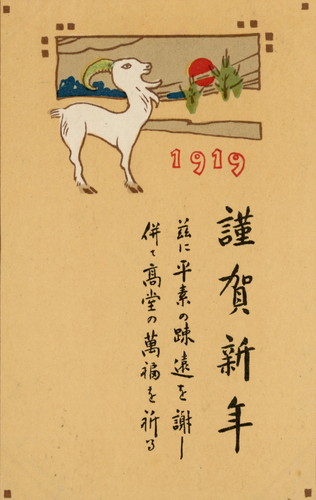 1919
謹賀新年
茲に平素の疎遠を謝し
併て高堂の萬福を祈る